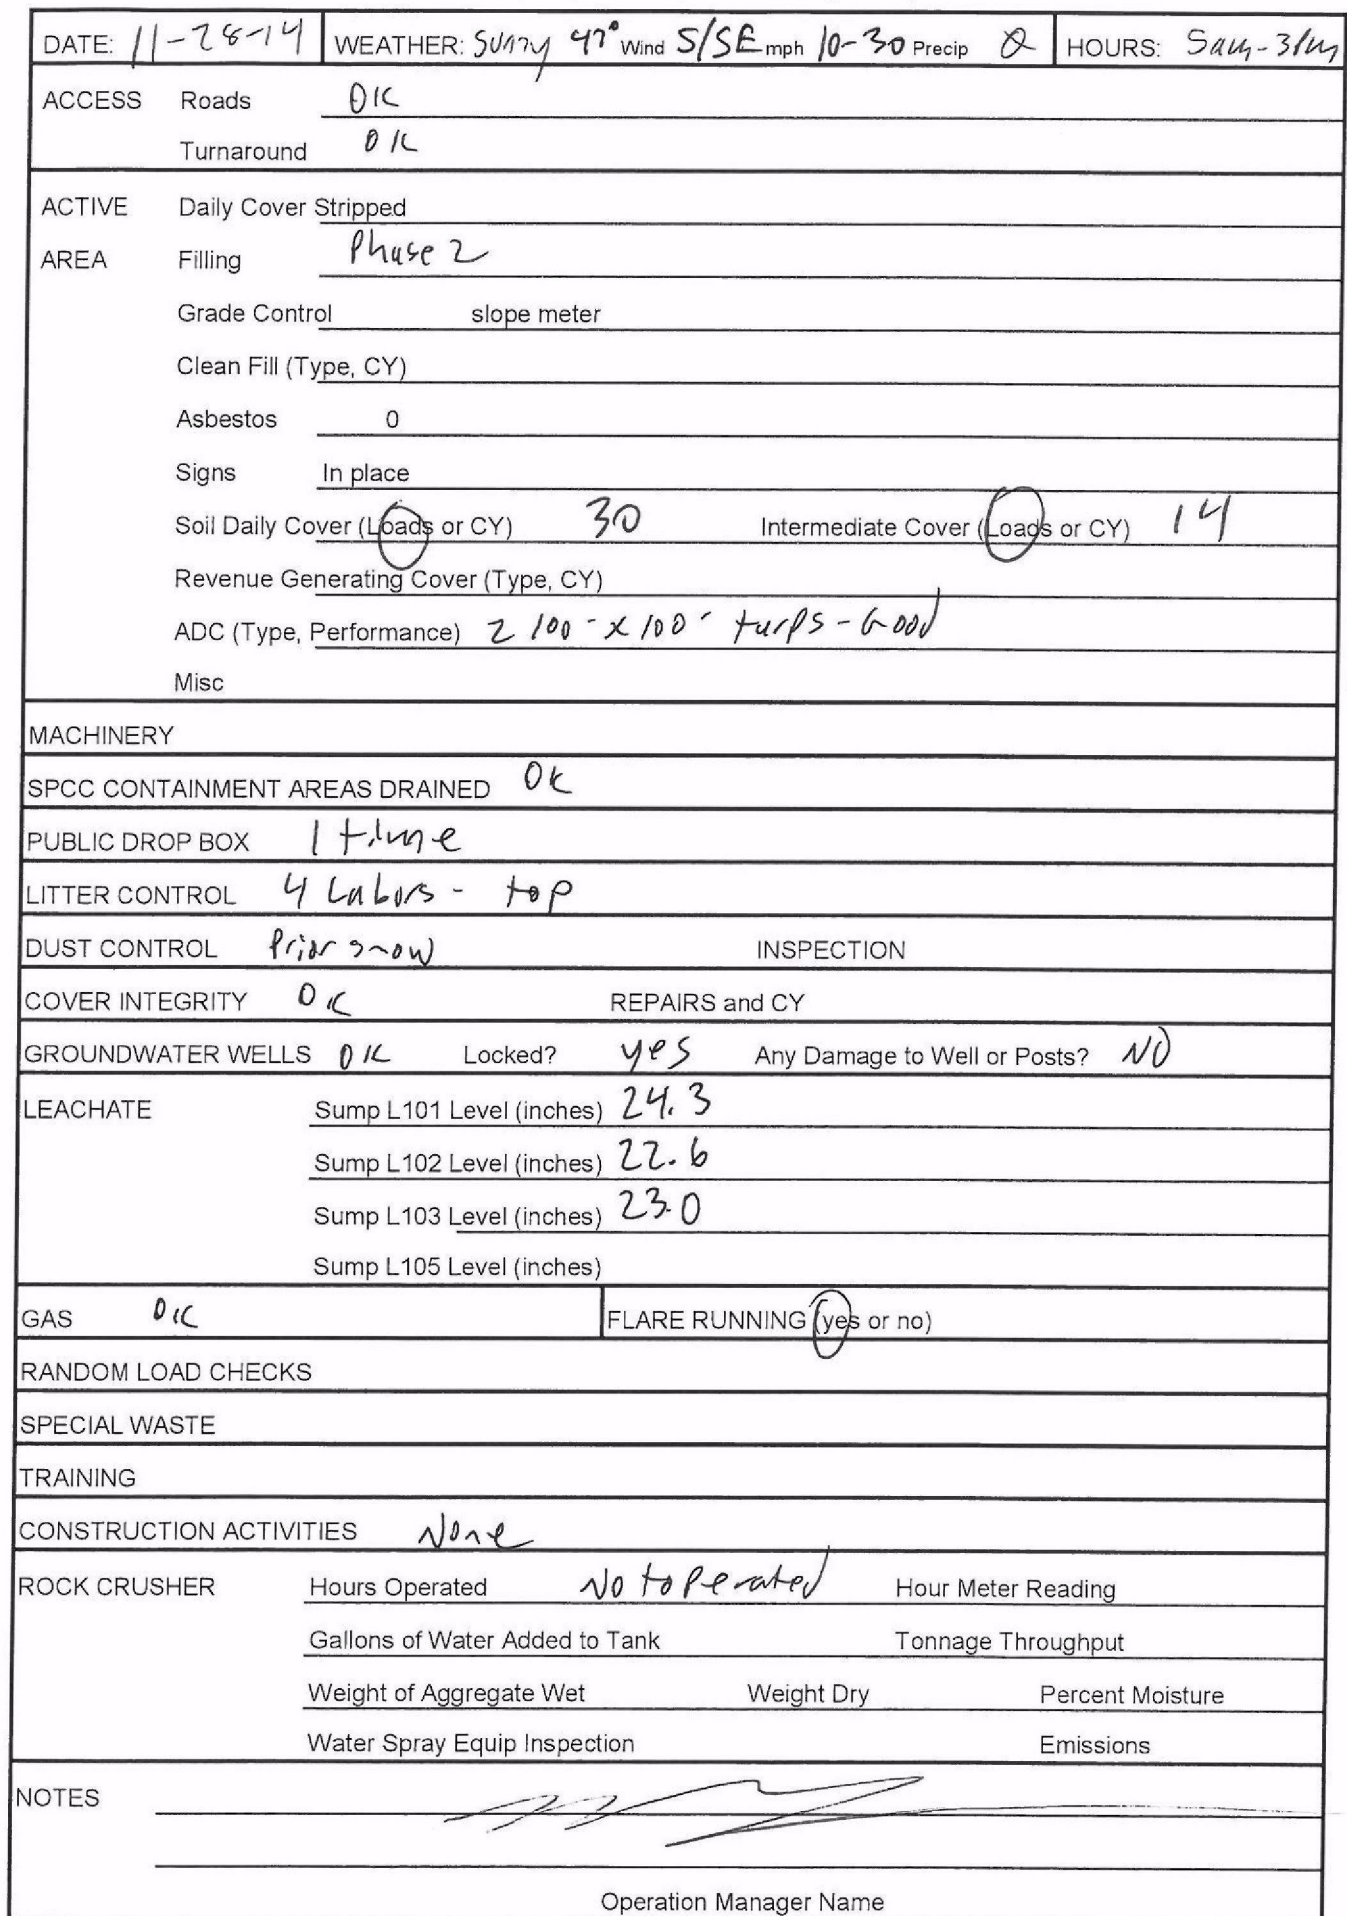 DATE: 11-28-14 WEATHER: Sunny 47° Wind S/SE mph 10-30 Precip 0 HOURS: 5am-3pm
ACCESS Roads OK
Turnaround OK
ACTIVE Daily Cover Stripped
AREA Filling Phase 2
Grade Control slope meter
Clean Fill (Type, CY)
Asbestos 0
Signs In place
Soil Daily Cover (Loads or CY) 30 Intermediate Cover (Loads or CY) 14
Revenue Generating Cover (Type, CY)
ADC (Type, Performance) 2 100' x 100' tarps - Good
Misc
MACHINERY
SPCC CONTAINMENT AREAS DRAINED OK
PUBLIC DROP BOX 1 time
LITTER CONTROL 4 Labors - top
DUST CONTROL Prior snow INSPECTION
COVER INTEGRITY OK REPAIRS and CY
GROUNDWATER WELLS OK Locked? yes Any Damage to Well or Posts? NO
LEACHATE Sump L101 Level (inches) 24.3
Sump L102 Level (inches) 22.6
Sump L103 Level (inches) 23.0
Sump L105 Level (inches)
GAS OK FLARE RUNNING (yes or no)
RANDOM LOAD CHECKS
SPECIAL WASTE
TRAINING
CONSTRUCTION ACTIVITIES None
ROCK CRUSHER Hours Operated Not operated Hour Meter Reading
Gallons of Water Added to Tank Tonnage Throughput
Weight of Aggregate Wet Weight Dry Percent Moisture
Water Spray Equip Inspection Emissions
NOTES
Operation Manager Name